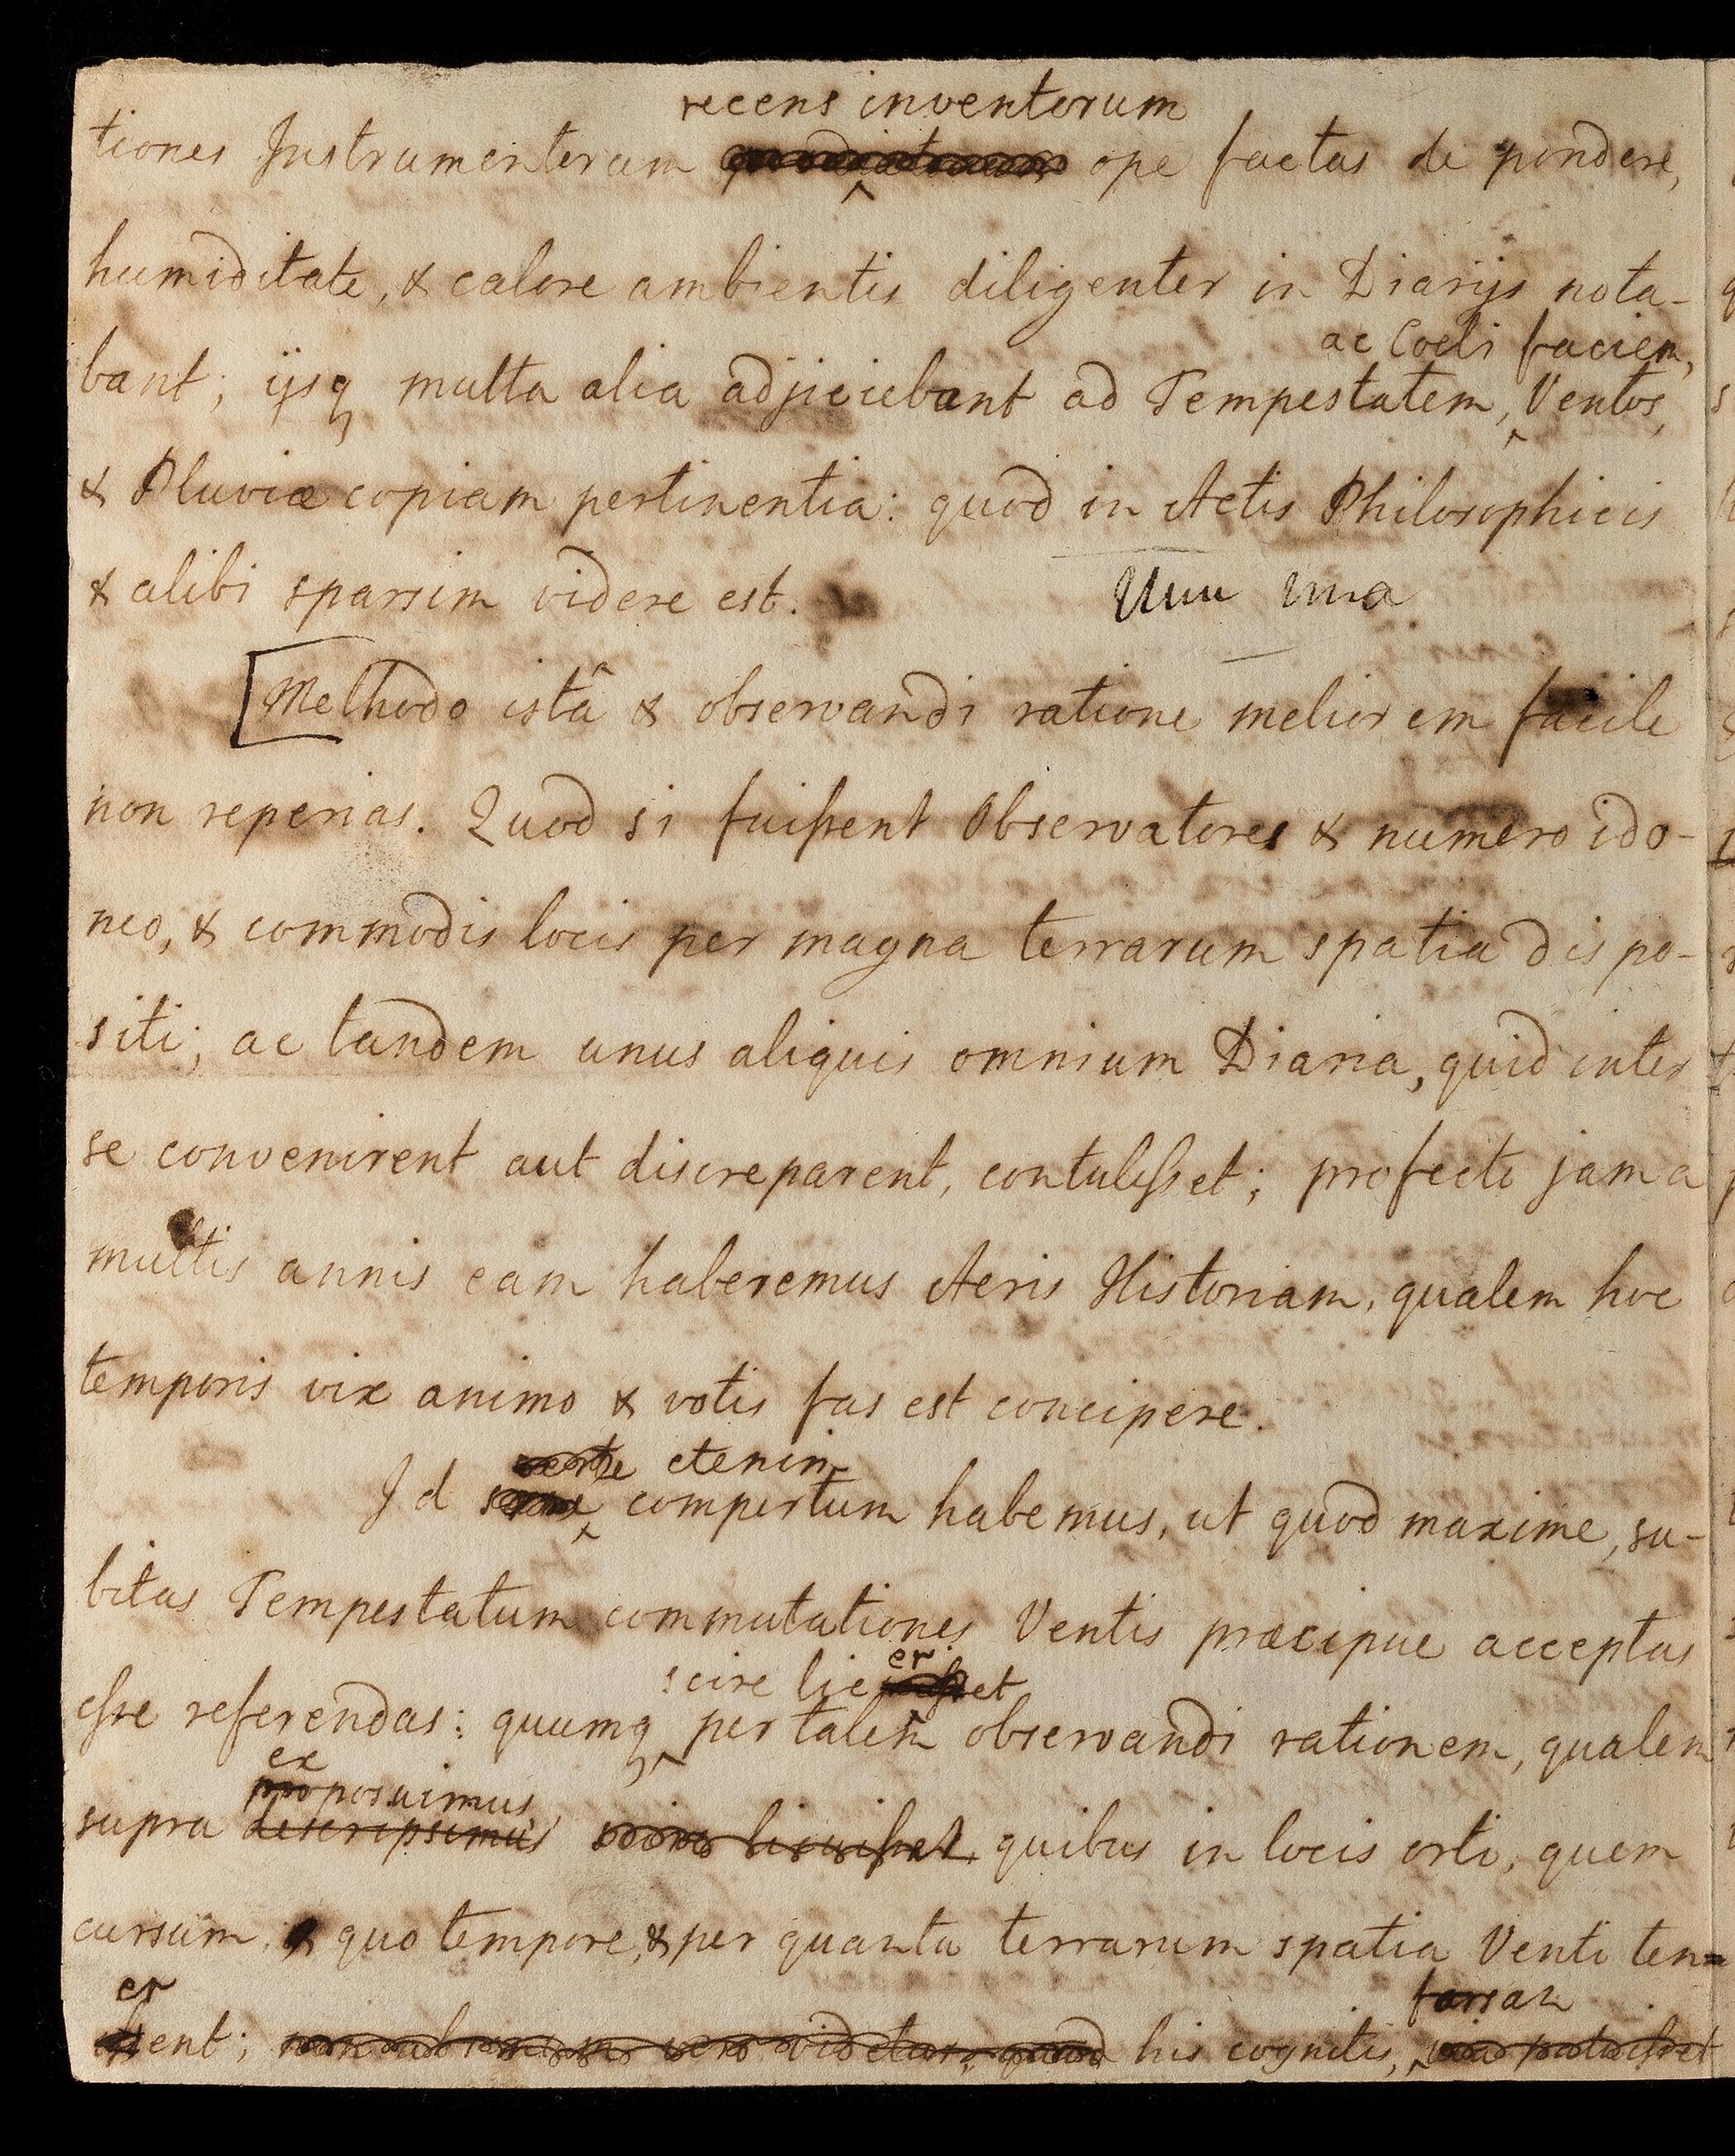 recens inventorum
tiones Instrumentorum ope factas de pondere,
humiditate, & calore ambientis diligenter in Diarijs nota-
ac Coeli faciem,
bant; ijsq multa alia adjiciebant ad Tempestatem, Ventos,
& Pluviæ copiam pertinentia: quod in Actis Philosophicis
& alibi sparsim videre est.
[Methodo istâ & observandi ratione meliorem facile
non reperias. Quod si fuissent Observatores & numero ido-
neo, & commodis locis per magna terrarum spatia dispo-
siti; ac tandem unus aliquis omnium Diaria, quid inter
se convenirent aut discreparent, contulisset; profecto jam a
multis annis eam haberemus Aeris Historiam, qualem hoc
temporis vix animo & votis fas est concipere.
etenim
Id compertum habemus, ut quod maxime, su-
bitas Tempestatum commutationes Ventis præcipue acceptas
scire liceret
esse referendas: quumq per talem observandi rationem, qualem
ex
proposuimus
supra descripsimus scire licuisset quibus in locis orti, quem
cursum, & quo tempore, & per quanta terrarum spatia Venti ten-
er forsan
ssent; non absimile vero videtur, quod his cognitis, via patuisset